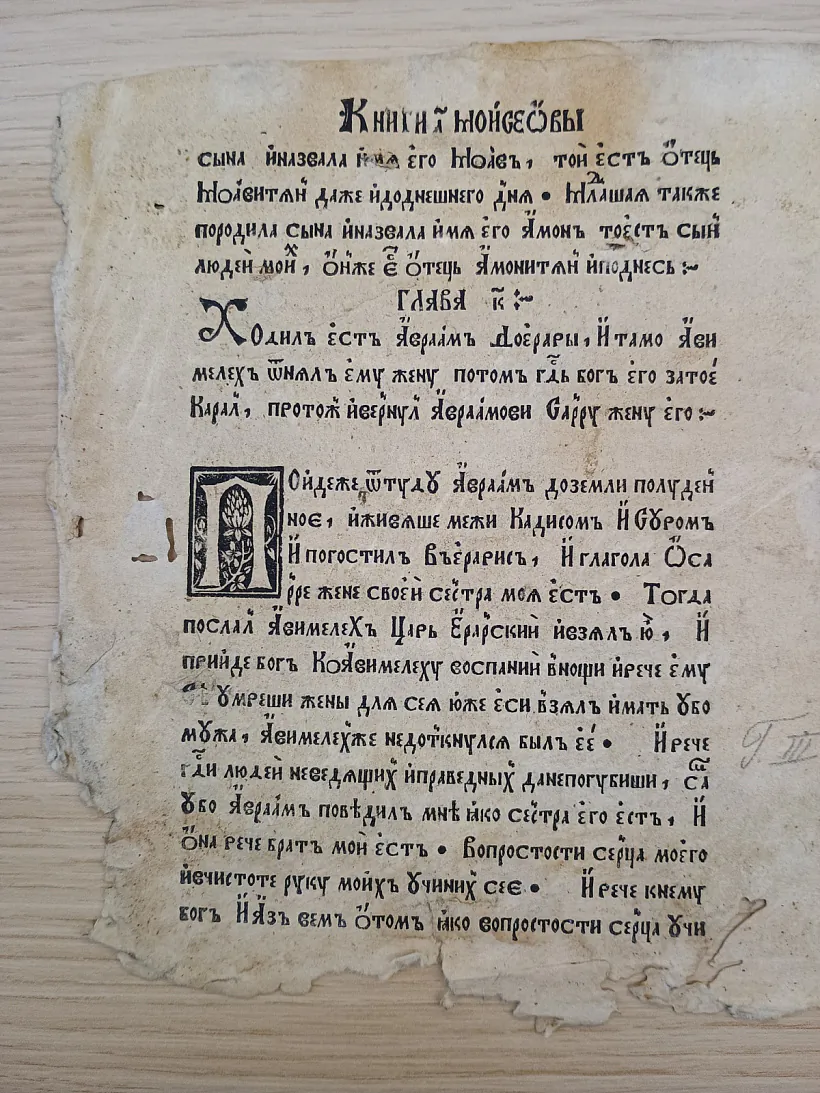 Книги а҃ Мойсеѡвы
сына ѝназвала ѝмѧ его Моавъ, той естъ ѻтець
Моавитѧн даже ѝдоднешнего днѧ • Младшаѧ также
породила сына ѝназвала ѝмѧ его Амонъ тоестъ сын
людей моих, ѻнже ест ѻтець Амонитѧн ѝподнесь :~
ГЛАВА к҃ :~
Ходилъ естъ Авраамъ Доерары, И тамо Ави
мелехъ ѿнѧлъ ему жену потомъ гдь богъ его затое
Карал, протож ѝвернул Авраамови Сарру жену его :~
Пойдеже ѿтуду Авраамъ доземли полуден
ное, ѝживѧше межи Кадисомъ И Суромъ
И погостилъ Въерарисъ, И глагола Ѻса
рре жене своей сестра моѧ естъ • Тогда
послал Авимелехъ Царь Ерарский ѝвзѧлъ ю, И
прийде богъ КоАвимелеху воспаний внощи ѝрече ему
умреши жены длѧ сеѧ юже еси взѧлъ ѝмать убо
мужа, Авимелехже недоткнулсѧ былъ ее • И рече
гди людей неведѧщих ѝправедных данепогубиши, сам
убо Авраамъ поведилъ мнѣ ꙗко сестра его естъ, И
ѻна рече братъ мой естъ • Вопростости серца моего
ѝвчистоте руку моихъ учиних сее • И рече кнему
богъ И Азъ вемъ ѻтомъ ꙗко вопростости серца учи